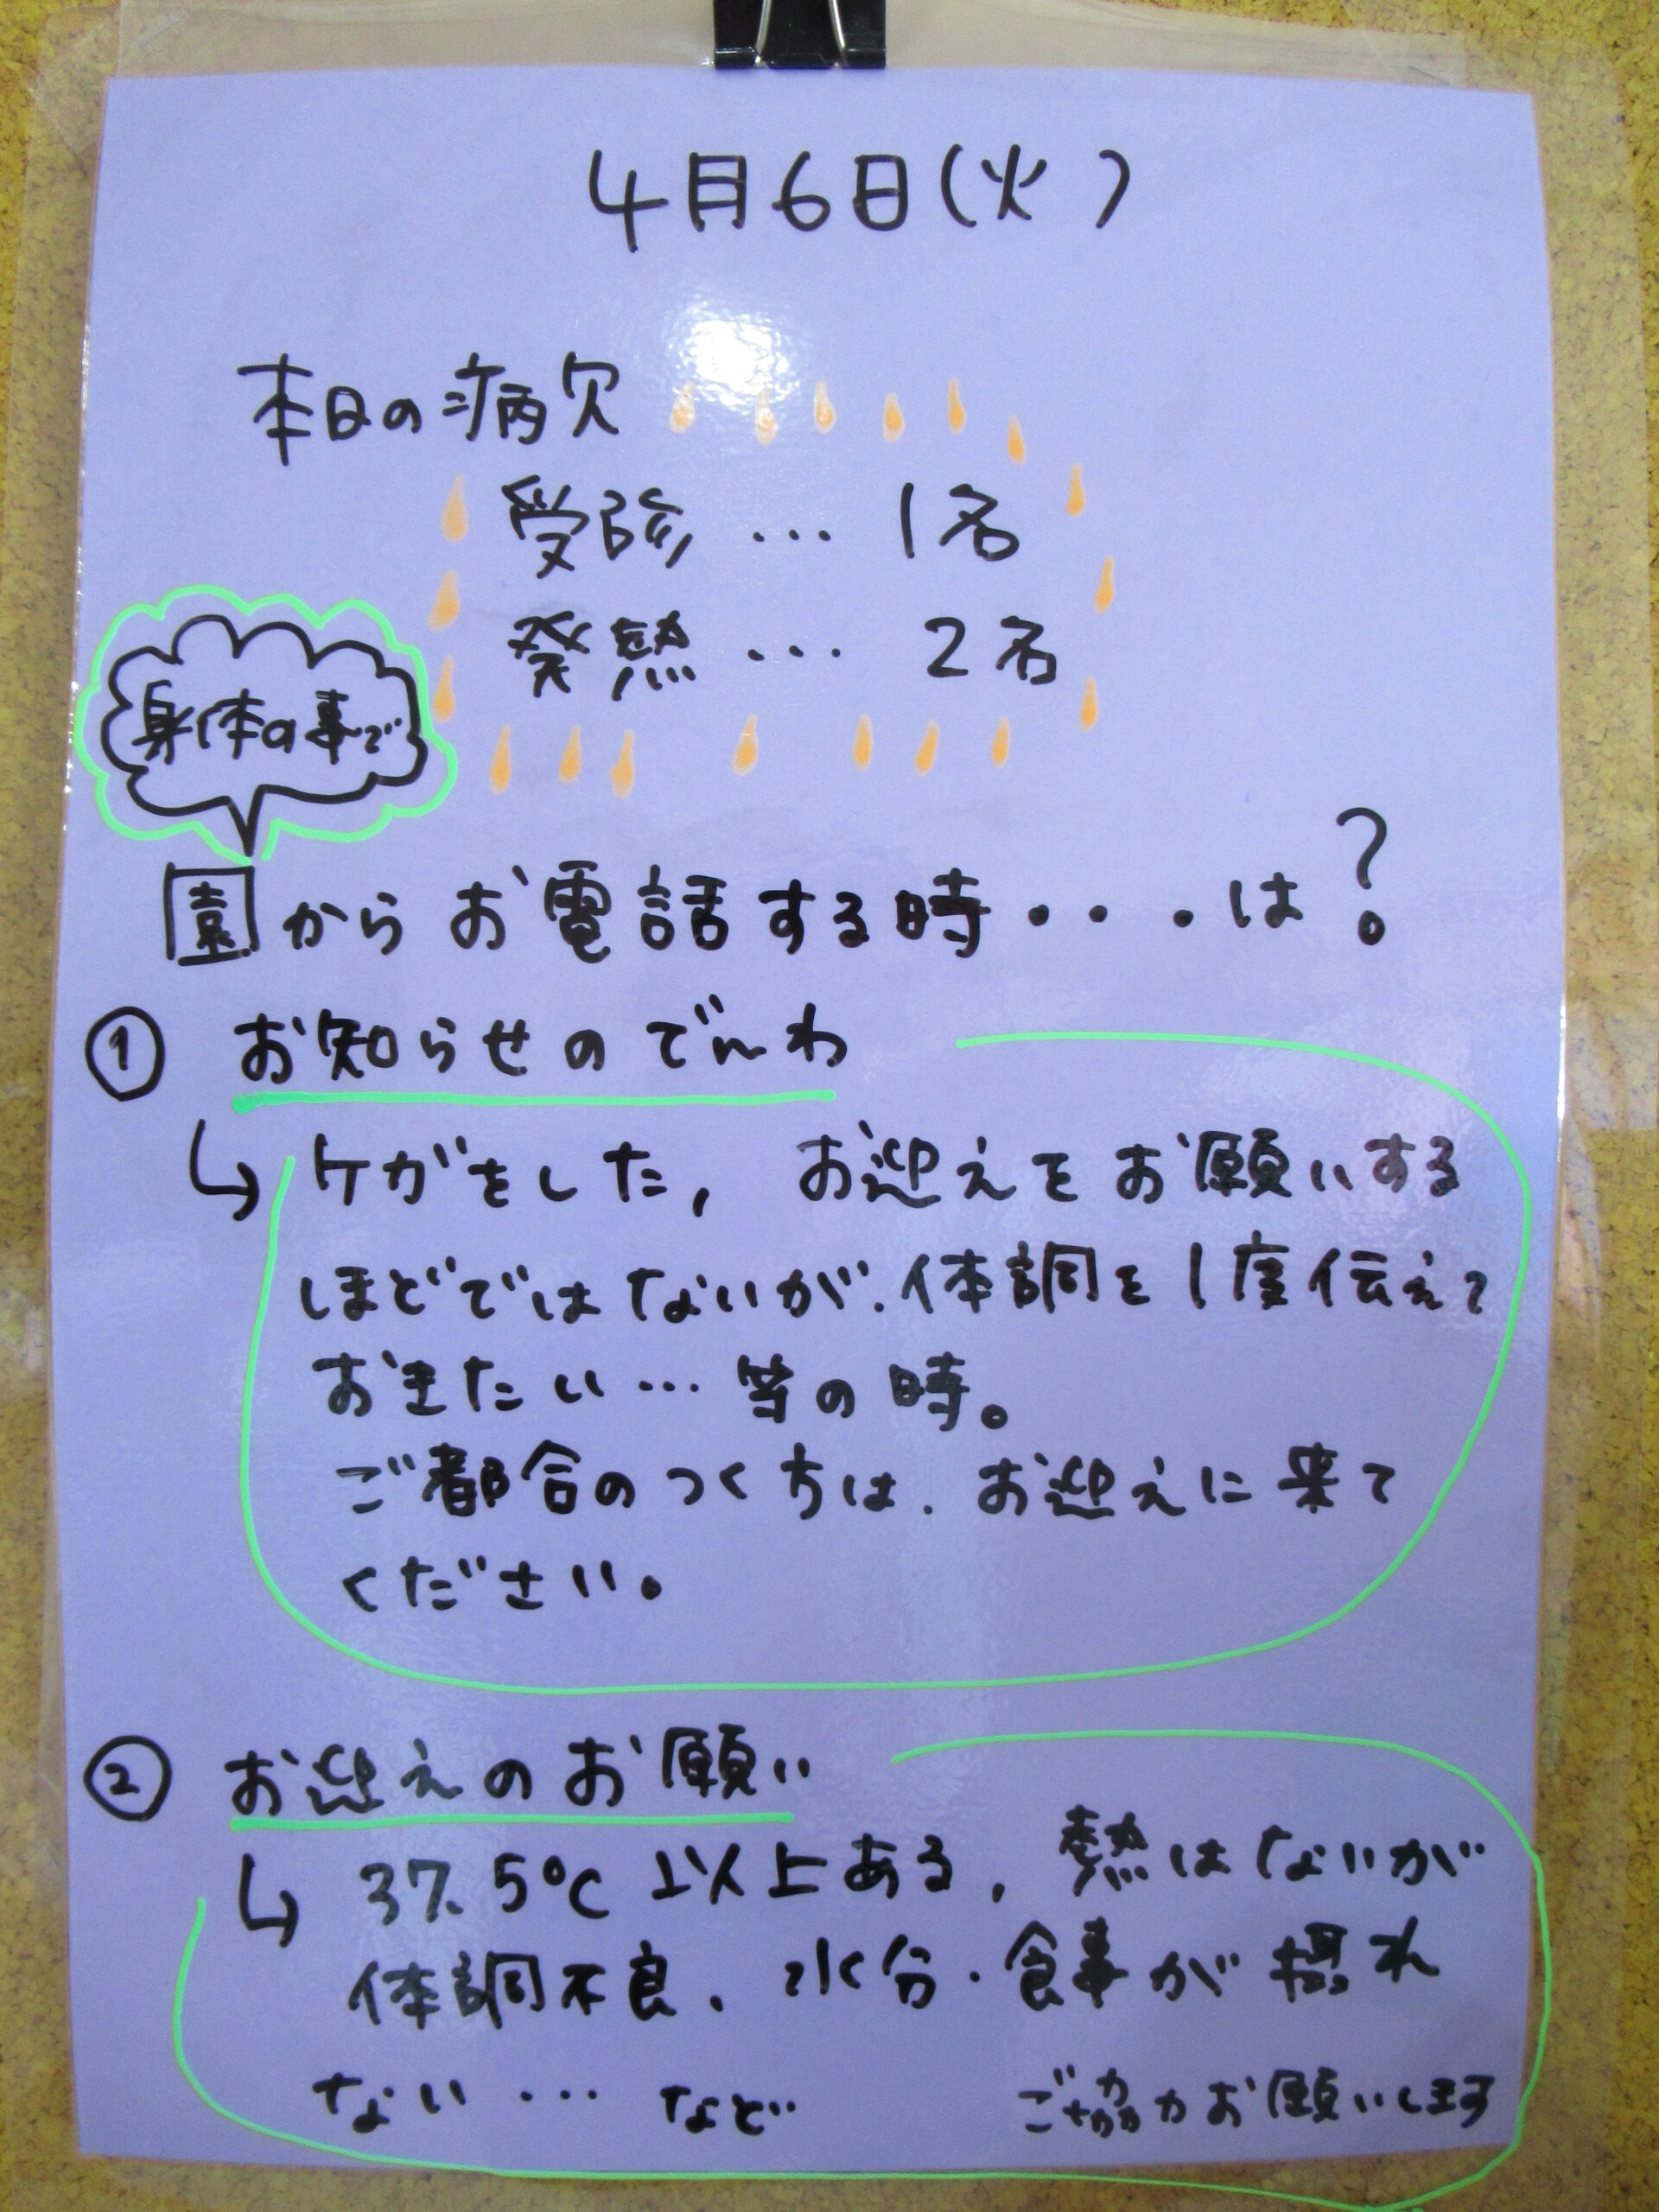 4月6日(火)
本日の病欠
受診 … 1名
発熱 … 2名
身体の事で
園からお電話する時・・・は?
① お知らせのでんわ
↳ ケガをした, お迎えをお願いする
ほどではないが、体調を1度伝えて
おきたい… 等の時。
ご都合のつく方は、お迎えに来て
ください。
② お迎えのお願い
↳ 37.5℃以上ある, 熱はないが
体調不良、水分・食事が摂れ
ない … など
ご協力お願いします